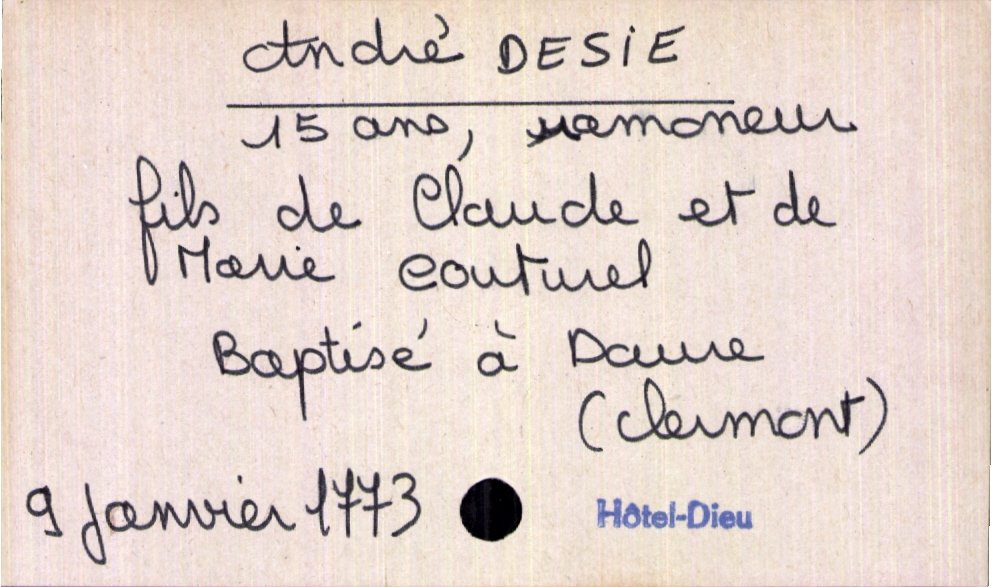 André DESIE
15 ans, ramoneur
fils de Claude et de
Marie couturel
Baptisé à Daure
(clermont)
9 Janvier 1773
Hôtel-Dieu